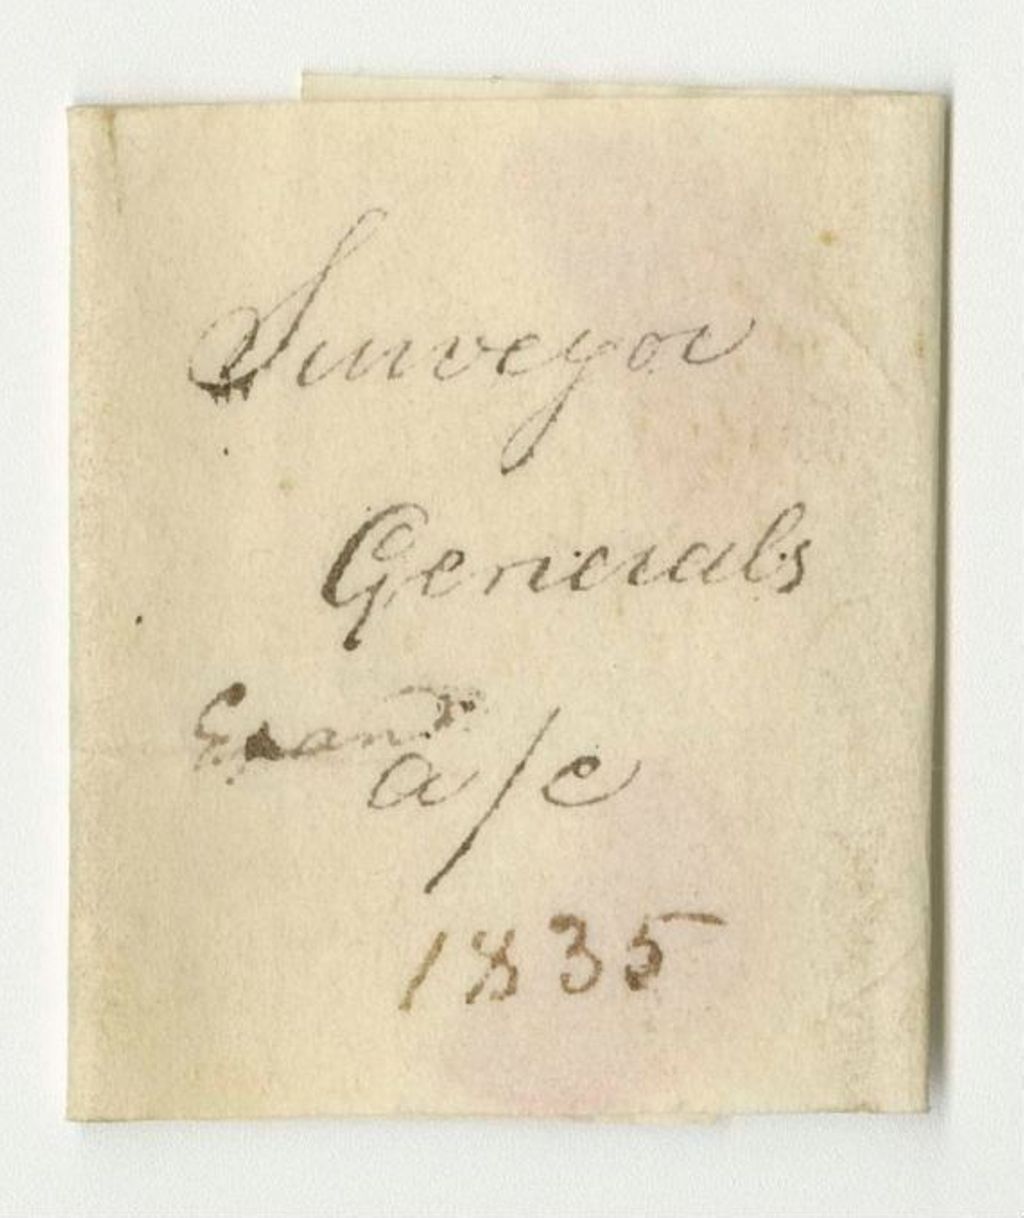 Surveyor
Generals
a/c
1835